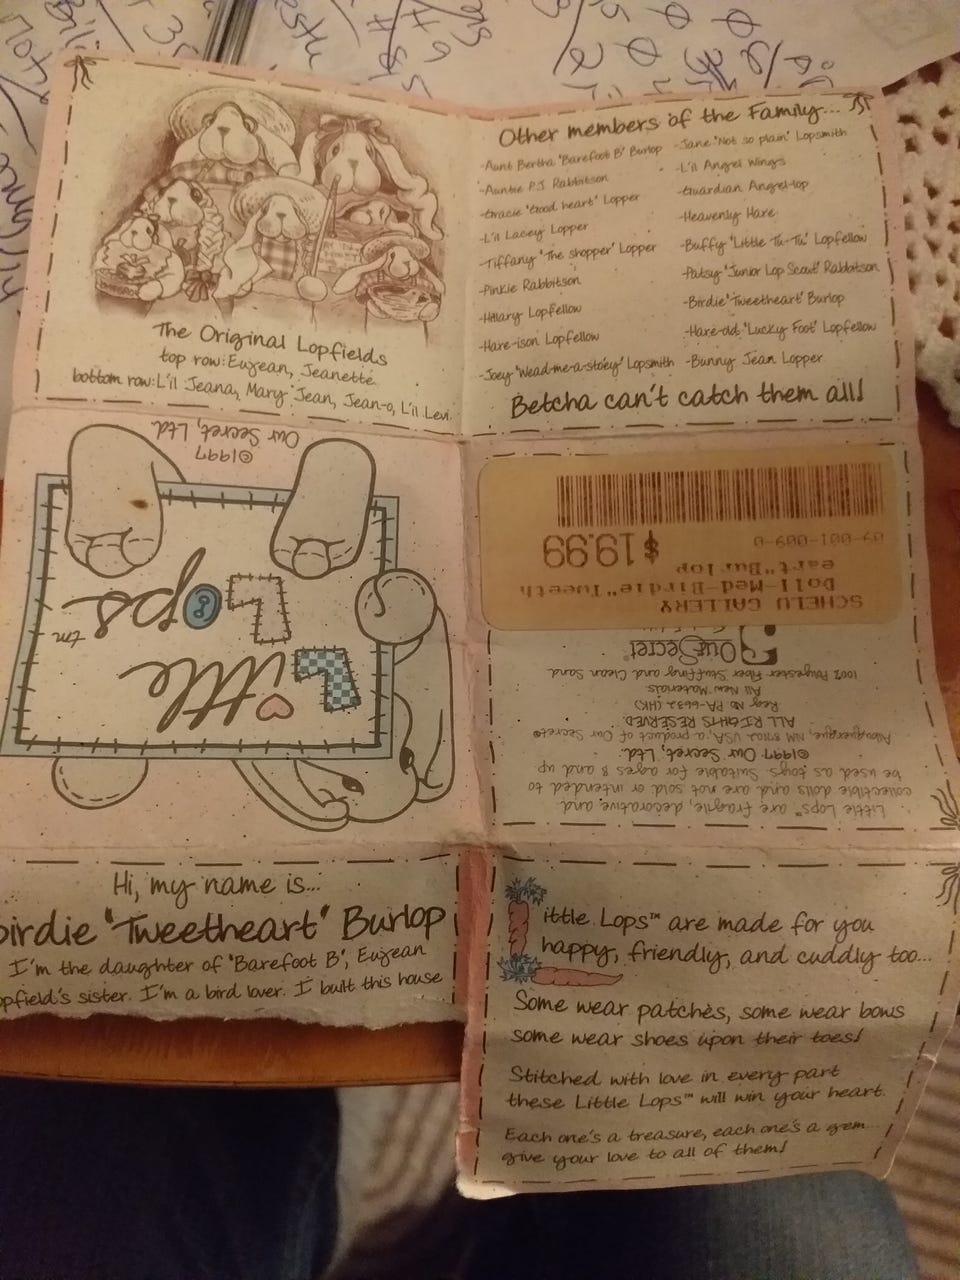 The Original Lopfields
top row: Eugean, Jeanette
bottom row: L'il Jeana, Mary Jean, Jean-o, L'il Levi.
Other members of the Family...
-Aunt Bertha "Barefoot B" Burlop
-Auntie P.J. Rabbitson
-Gracie "Good heart" Lopper
-L'il Lacey Lopper
-Tiffany "The shopper" Lopper
-Pinkie Rabbitson
-Hillary Lopfellow
-Hare-ison Lopfellow
-Joey "Wead-me-a-stoey" Lopsmith
-Jane "Not so plain" Lopsmith
-L'il Angel Wings
-Guardian Angel-lop
-Heavenly Hare
-Buffy "Little Tu-Tu" Lopfellow
-Patsy "Junior Lop Scout" Rabbitson
-Birdie "Tweetheart" Burlop
-Hare-old "Lucky Foot" Lopfellow
-Bunny Jean Lopper
Betcha can't catch them all!
Little
Lops tm
©1997
Our Secret, Ltd.
Little Lops™ are fragile, decorative, and
collectible dolls and are not sold or intended to
be used as toys. Suitable for ages 8 and up
©1997 Our Secret, Ltd.
Albuquerque, NM 87102 USA, a product of Our Secret®
ALL RIGHTS RESERVED
Reg. No PA-6632 (HK)
All New Materials
100% Polyester Fiber Stuffing and Clean Sand
OurSecret®
SCHELU GALLERY
Doll-Med-Birdie"Tweeth
eart"Burlop
09-001-009-0
$19.99
Hi, my name is...
Birdie "Tweetheart" Burlop
I'm the daughter of "Barefoot B", Eugean
opfield's sister. I'm a bird lover. I built this house
ittle Lops™ are made for you
happy, friendly, and cuddly too...
Some wear patches, some wear bows
some wear shoes upon their toes!
Stitched with love in every part
these Little Lops™ will win your heart.
Each one's a treasure, each one's a gem
give your love to all of them!